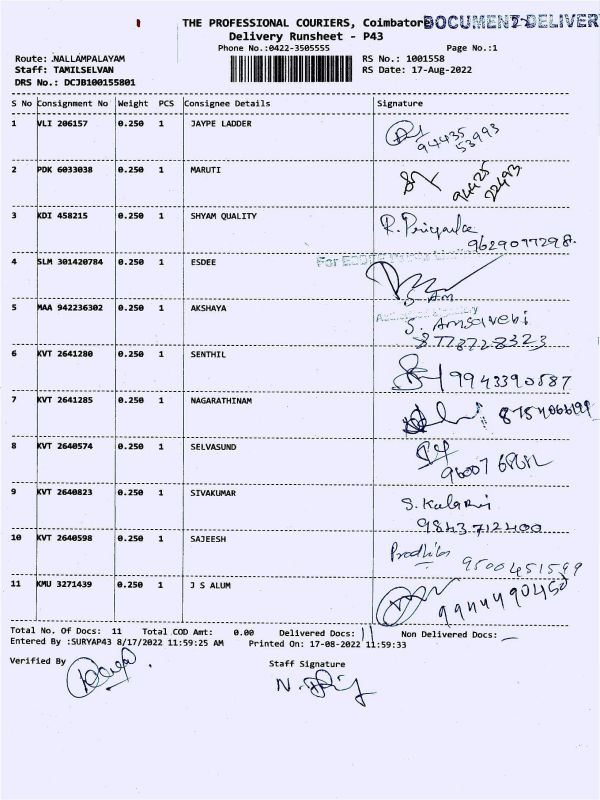 THE PROFESSIONAL COURIERS, Coimbator DOCUMENT DELIVER
Delivery Runsheet - P43
Phone No.:0422-3505555 Page No.:1
Route: .NALLAMPALAYAM RS No.: 1001558
Staff: TAMILSELVAN RS Date: 17-Aug-2022
DRS No.: DCJB100155801
S No Consignment No Weight PCS Consignee Details Signature
1 VLI 206157 0.250 1 JAYPE LADDER
94435
53993
2 PDK 6033038 0.250 1 MARUTI
94425
22493
3 KDI 458215 0.250 1 SHYAM QUALITY R. Priyanka
9629077298.
4 SLM 301420784 0.250 1 ESDEE
For
S. Am
5 MAA 942236302 0.250 1 AKSHAYA
S. Amsaveni
8778728323
6 KVT 2641280 0.250 1 SENTHIL
9943390587
7 KVT 2641285 0.250 1 NAGARATHINAM
8 KVT 2640574 0.250 1 SELVASUND
9 KVT 2640823 0.250 1 SIVAKUMAR
9843712400
10 KVT 2640598 0.250 1 SAJEESH
9500451599
11 KMU 3271439 0.250 1 J S ALUM
9944490450
Total No. Of Docs: 11 Total COD Amt: 0.00 Delivered Docs: 11 Non Delivered Docs: _
Entered By :SURYAP43 8/17/2022 11:59:25 AM Printed On: 17-08-2022 11:59:33
Verified By Staff Signature